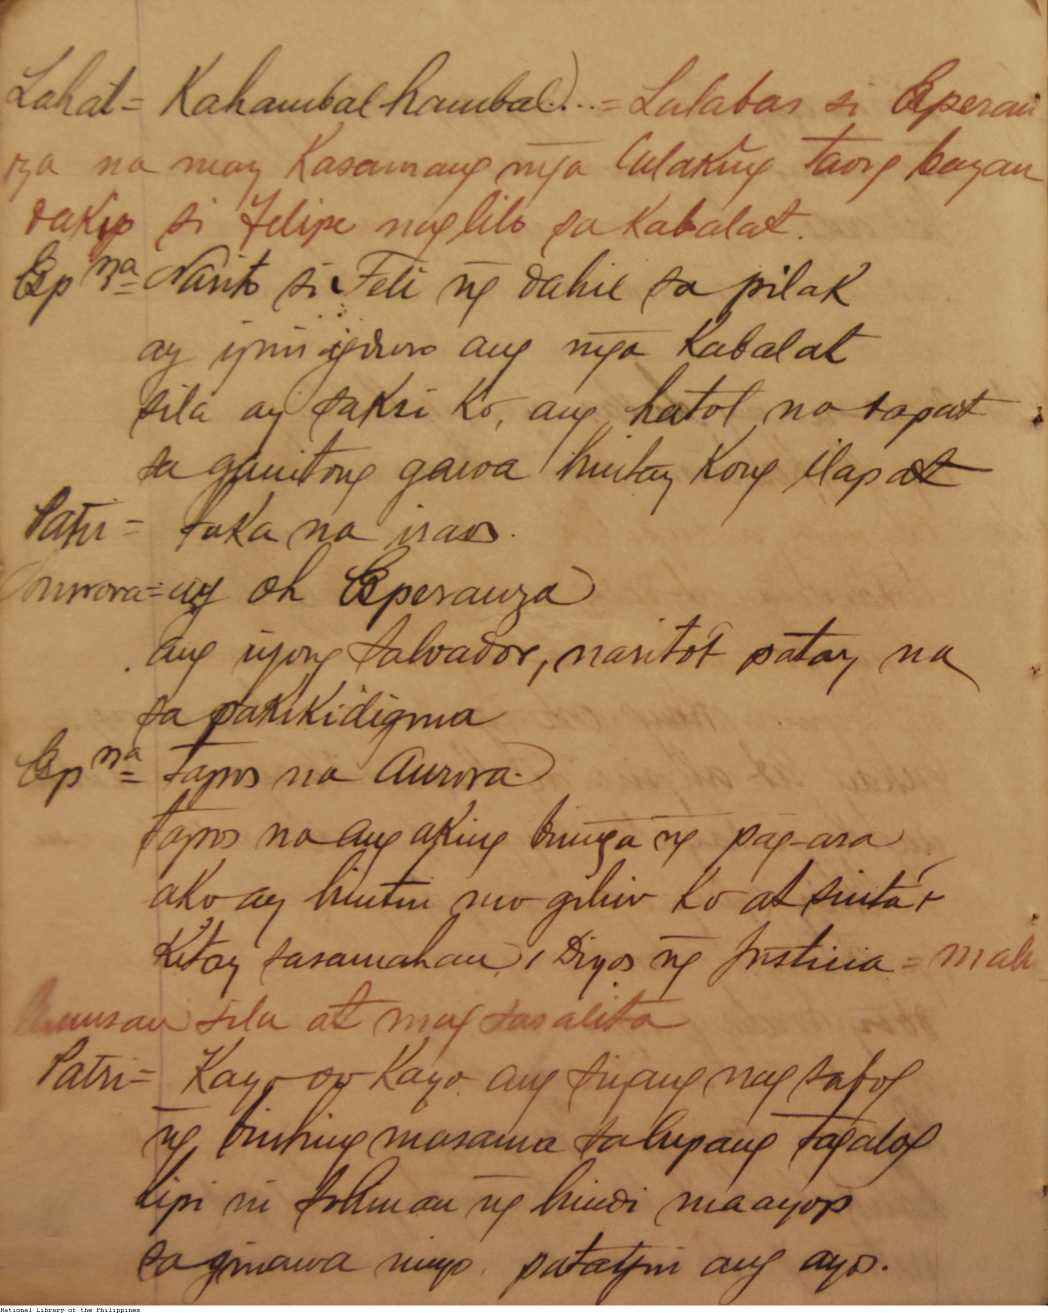 Lahat = Kahambalhambal)... = Lalabas si Esperan
za na may Kasamang mga lalaking taong bayan
dakip si Felipe naglilo sa Kabalat.
Esp na = Narito si Feli ng dahil sa pilak
ay ipinagduro ang mga Kabalat
sila ay saksi Ko, ang hatol na sapat
sa ganitong gawa hintay Kong ilapat
Patri = saka na iraos.
Aurora = ay oh Esperanza
ang iyong Salvador, narito't patay na
sa pakikidigma
Esp na = tapos na Aurora.
tapos na ang aking bunga ng pag-asa
ako ay hintin mo giliw Ko at sinta't
Kita'y sasamahan, Diyos ng Justicia = mali
sila at mag sasalita
Patri = Kayo oo Kayo ang siyang nag sabog
ng binhing masama sa lupang tagalog
lipi ni Soliman ng hindi maayop
sa ginawa ninyo. patayin ang ayo.
National Library of the Philippines